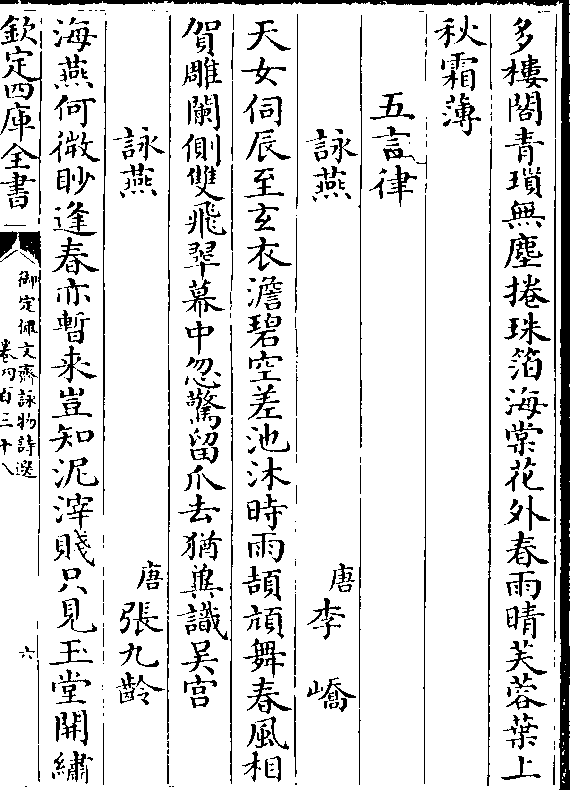 多樓閣青瑣無塵捲珠箔海棠花外春雨晴芙蓉葉上
秋霜薄
五言律
詠燕　唐李嶠
天女伺辰至玄衣澹碧空差池沐時雨頡頏舞春風相
賀雕闌側雙飛翠幕中忽驚留爪去猶冀識吳宫
詠燕　唐張九齡
海燕何微眇逢春亦暫來豈知泥滓賤只見玉堂開繡
欽定四庫全書
御定佩文齋詠物詩選
卷四百三十八
六